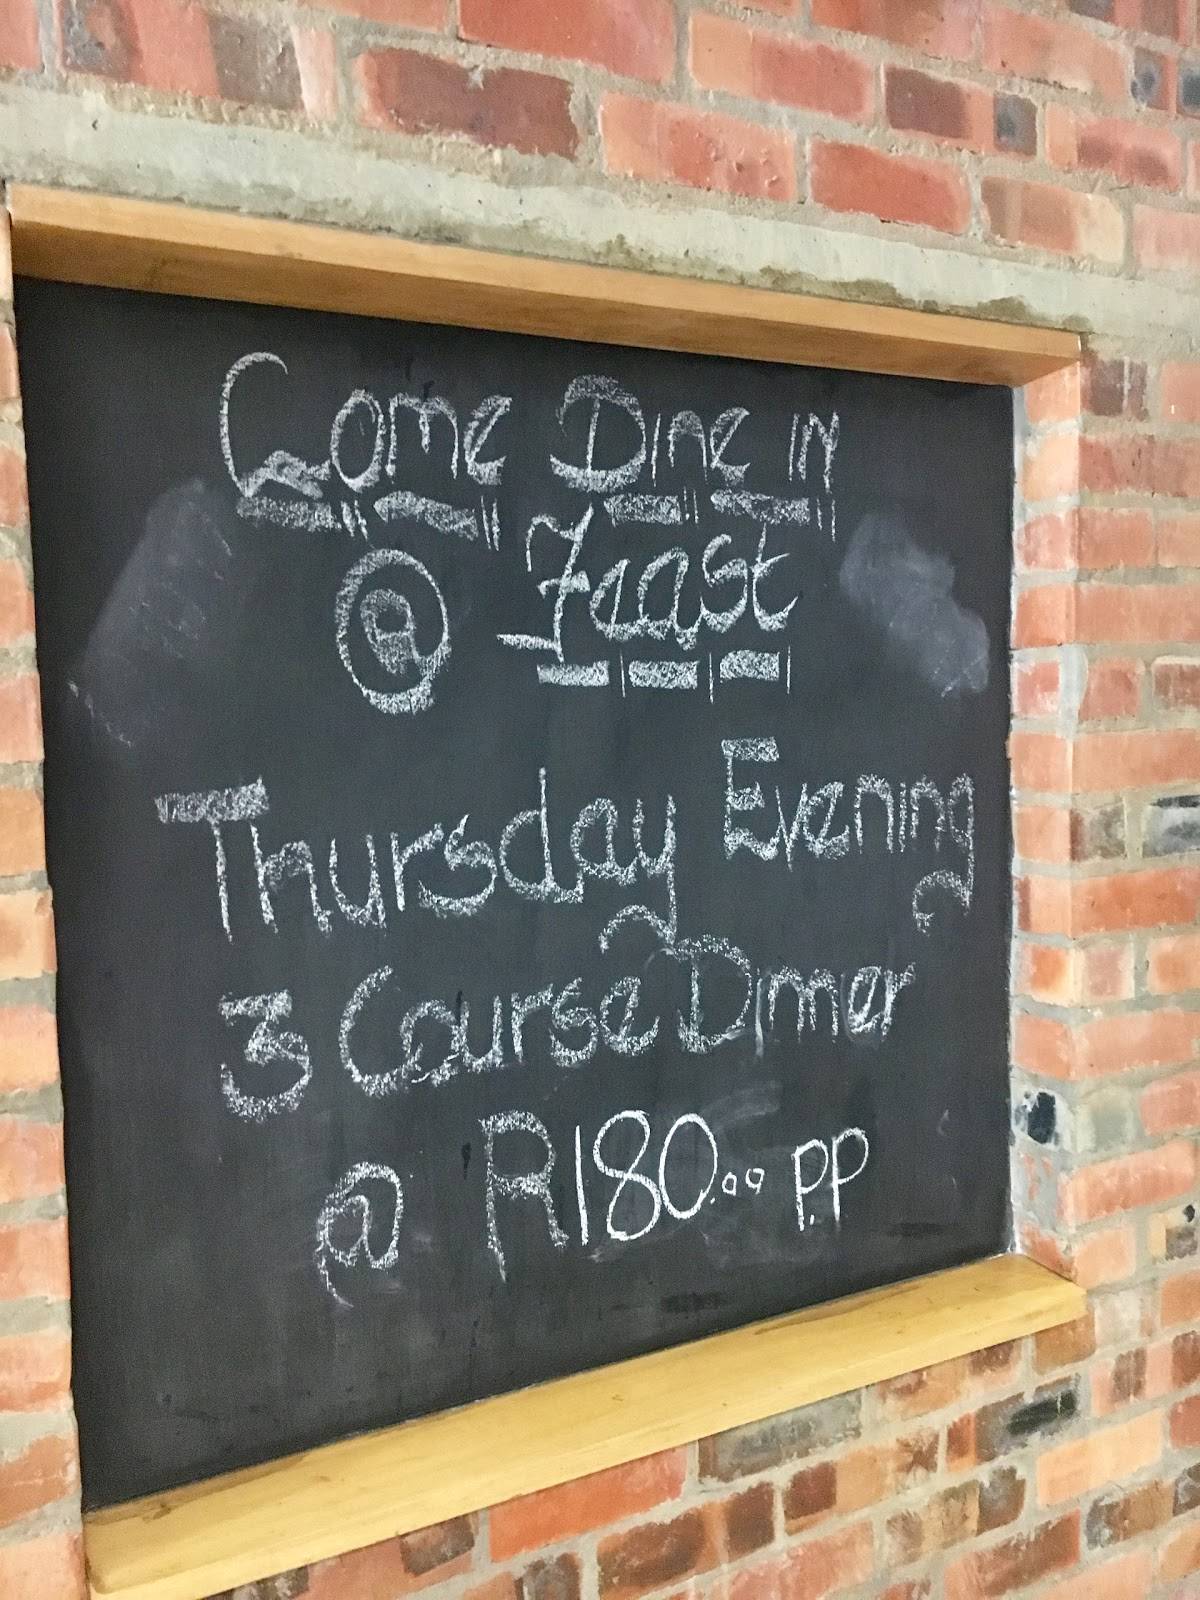 Come Dine in
@ Feast
Thursday Evening
3 Course Dinner
@ R180.00 P.P